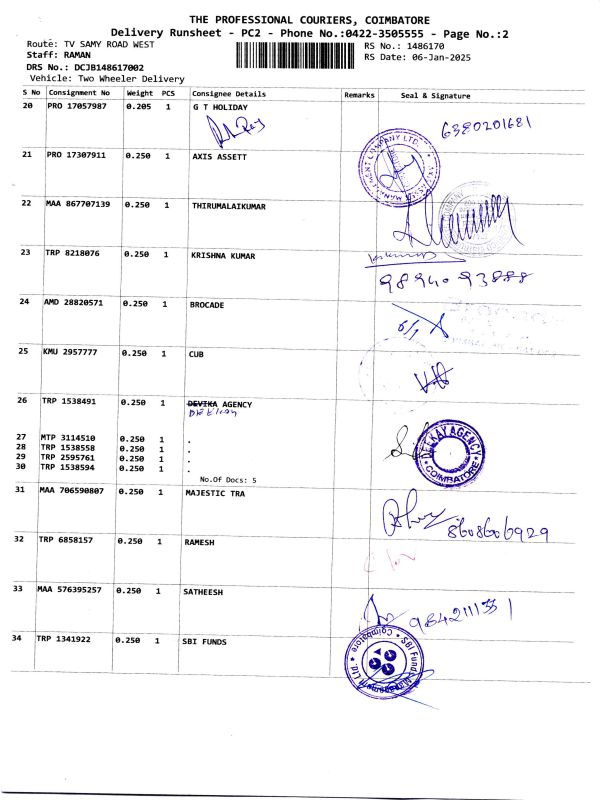 THE PROFESSIONAL COURIERS, COIMBATORE
Delivery Runsheet - PC2 - Phone No.:0422-3505555 - Page No.:2
Route: TV SAMY ROAD WEST RS No.: 1486170
Staff: RAMAN RS Date: 06-Jan-2025
DRS No.: DCJB148617002
Vehicle: Two Wheeler Delivery
S No Consignment No Weight PCS Consignee Details Remarks Seal & Signature
20 PRO 17057987 0.205 1 G T HOLIDAY
6380201681
21 PRO 17307911 0.250 1 AXIS ASSETT
AXIS ASSET MANAGEMENT COMPANY LTD.
22 MAA 867707139 0.250 1 THIRUMALAIKUMAR
23 TRP 8218076 0.250 1 KRISHNA KUMAR
98940 93888
24 AMD 28820571 0.250 1 BROCADE
6/1
25 KMU 2957777 0.250 1 CUB
26 TRP 1538491 0.250 1 DEVIKA AGENCY
DEEKAY AGENCY
COIMBATORE
27 MTP 3114510 0.250 1 .
28 TRP 1538558 0.250 1 .
29 TRP 2595761 0.250 1 .
30 TRP 1538594 0.250 1 .
No.Of Docs: 5
31 MAA 706590807 0.250 1 MAJESTIC TRA
8608606929
32 TRP 6858157 0.250 1 RAMESH
33 MAA 576395257 0.250 1 SATHEESH
9842111331
34 TRP 1341922 0.250 1 SBI FUNDS
SBI Funds Management Ltd.
Coimbatore